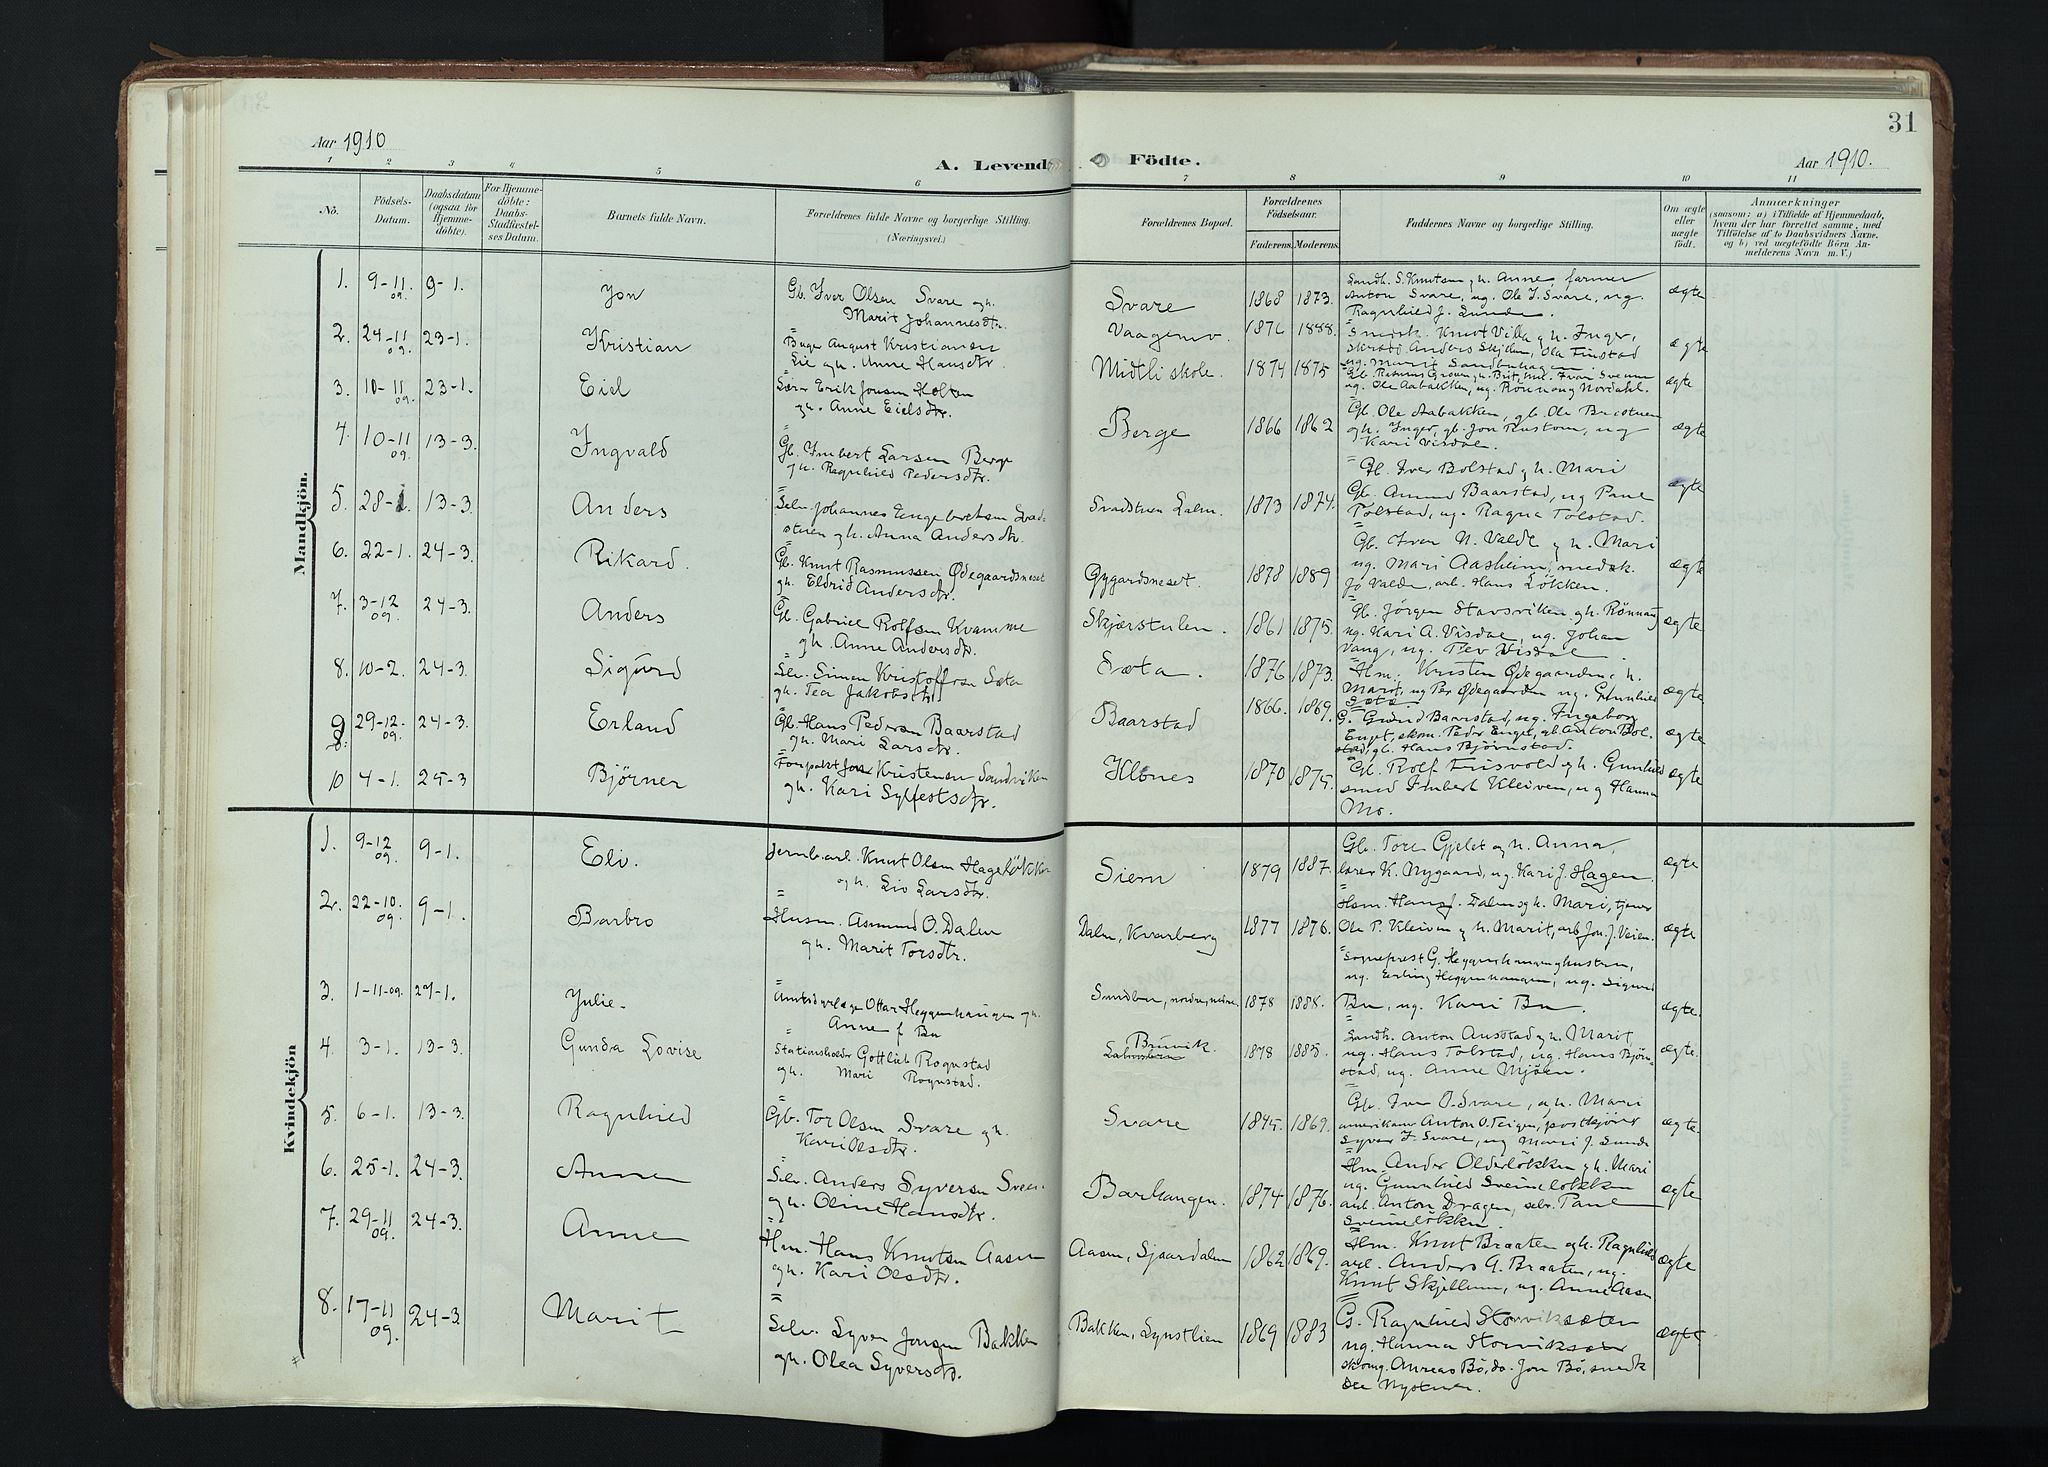 31
Aar 1910
A. Levende Födte.
Aar 1910.
1 2 3 4 5 6 7 8 9 10 11
No.
Födsels-Datum.
Daabsdatum (ogsaa for Hjemme-döbte).
For Hjemme-döbte: Daabs-Stadfæstel-ses Datum.
Barnets fulde Navn.
Forældrenes fulde Navne og borgerlige Stilling.
(Næringsvei.)
Forældrenes Bopæl.
Forældrenes Födselsaar.
Faderens. Moderens.
Faddernes Navne og borgerlige Stilling.
Om ægte eller uægte födt.
Anmærkninger
(saasom: a) i Tilfælde af Hjemmedaab, hvem der har forrettet samme, med Tilföielse af to Daabsvidners Navne, og b) ved uægtefödte Börn Anmelderens Navn m. V.)
Mandkjön.
1. 9-11 09. 9-1. Jon Gb. Iver Olsen Svare og h. Marit Johannesdtr. Svare 1868 1873. Landh. S. Knutsen og h. Anne, farmer Anton Svare, ug. Ole I. Svare, ug. Ragnhild J. Sunde. ægte
2. 24-11 09. 23-1. Kristian August Kristiansen Lie og h. Anne Hansdtr. 1876 1888. Knut Villa og h. Inger, Anders Skjellum, Ola Finstad ug. Marit Sandbuhaugen. ægte
3. 10-11 09. 23-1. Eid Lærer Erik Jonsen Holten og h. Anne Eielsdtr. Midtli skole. 1874 1875 ug. Ole Aabakken, ug. Rønnaug Nordahl. ægte
4. 10-11 09. 13-3. Ingvald Gb. Imbert Larsen Berge og h. Ragnhild Pedersdtr. Berge 1866 1862 Gb. Ole Aabakken, gb. Ole og h. Inger, gb. Jon Rustom, ug Kari Visdal. ægte
5. 28-1. 13-3. Anders Selv. Johannes Engebretsen Svadstuen og h. Anna Andersdtr. Svadstuen Lalm. 1873 1874. Gb. Iver Bolstad og h. Mari Gb. Amund Baarstad, ug Paul Tolstad, ug. Ragna Tolstad. ægte
6. 22-1. 24-3. Rikard. Gb. Knut Rasmussen Ødegaardsneset og h. Eldrid Andersdtr. Gygardsneset. 1878 1889 Gb. Iver N. Valde og h. Mari ug. Mari Aasheim, Jo Valde, arb. Hans Løkken. ægte
7. 3-12 09. 24-3. Anders Gb. Gabriel Rolfsen Kvamme og h. Anne Andersdtr. Skjærstulen. 1861 1875. Gb. Jørgen Stavsviken og h. Rønnaug ug. Kari A. Visdal, ug. Johan Vang, ug. Per Visdal. ægte
8. 10-2. 24-3. Sigurd Selv. Simen Kristoffersen Sæta og h. Tea Jakobsdtr. Sæta. 1876 1873. Hm. Kristen Ødegaarden, h. Marit, ug Per Ødegaarden ug. Gunhild Sæta. ægte
9 29-12. 09. 24-3. Erland Gb. Hans Pedersen Baarstad og h. Mari Larsdtr. Baarstad 1866. 1869. Baarstad, ug. Ingeborg skom. Peder Enget, gb. Anton Bolstad, gb. Hans Bjørnstad. ægte
10 4-1. 25-3 Bjørner Forpakt Jon Kristensen Sandviken og h. Kari Sylfestsdtr. Klønes 1870 1875. Gb. Rolf Frisvold og h. Gunhild smed Imbert Kleiven, ug Hanna Mo. ægte
Kvindekjön
1. 9-12 09. 9-1. Eli. Jernb. arb. Knut Olsen Hageløkken og h. Liv Larsdtr. Siem 1879 1887. Gb. Tore Gjelet og h. Anna, lærer K. Nygaard, ug. Kari J. Hagen. ægte
2. 22-10 09. 9-1. Barbro Husm. Asmund O. Dalen og h. Marit Torsdtr. Dalen, Kvarberg 1877 1876. Hsm. Hans Dalen og h. Mari, tjener Ole P. Kleiven og h. Marit, arb. Jon J. Veien. ægte
3. 1-11-09. 27-1. Julie Ottar Heggenhaugen og h. Anne f Bu 1878 1888. Sogneprest G. Heggenhaugen og hustru, ug. Erling Heggenhaugen, ug. Sigurd Bu, ug. Kari Bu. ægte.
4. 3-1. 13-3. Gunda Lovise Stationsholder Gottlieb Rognstad og h. Mari Rognstad. Brúvik. 1878 1885. Landh. Anton Ausstad og h. Marit, ug. Hans Tolstad, ug. Hans Bjørnstad, ug. Anne Mjøen. ægte.
5. 6-1. 13-3. Ragnhild Gb. Tor Olsen Svare og h. Kari Olsdtr. Svare 1845. 1869. Gb. Iver O. Svare, og h. Mari amerikaner Anton O. Teigen, postkjører Syver I. Svare, ug Mari J. Sunde ægte.
6. 25-1. 24-3. Anne Selv. Anders Syversen og h. Oline Hansdtr. Barhaugen. 1874 1876. Hm. Ander Olderløkken og h. Mari ug. Gunnhild Sveineløkken arb. Anton Dragen, selv. Paul Sveineløkken. ægte
7. 29-11 09. 24-3. Anne Hm. Hans Knutsen Aasen og h. Kari Olsdtr. Aasen, Sjaardalen 1862 1869. Hm. Knut Braaten og h. Ragnhild arb. Anders A. Braaten, ug. Knut Skjellum, ug. Anne Aasen ægte
8. 17-11 09. 24-3 Marit Selv. Syver Jonsen Bakken og h. Olea Syversdtr. Bakken, Synstlien 1869 1883 G. Ragnhild Storviksæten ug. Hanna Storviksæter skomg. Anreas Bø, do. Jon Bø, snedk Nystuen. ægte